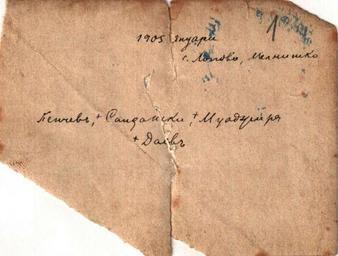 1
1905 януари
с. Лопово, Мелнишко
Пенчевъ, + Сандански, + Муоджира
+ Даевъ